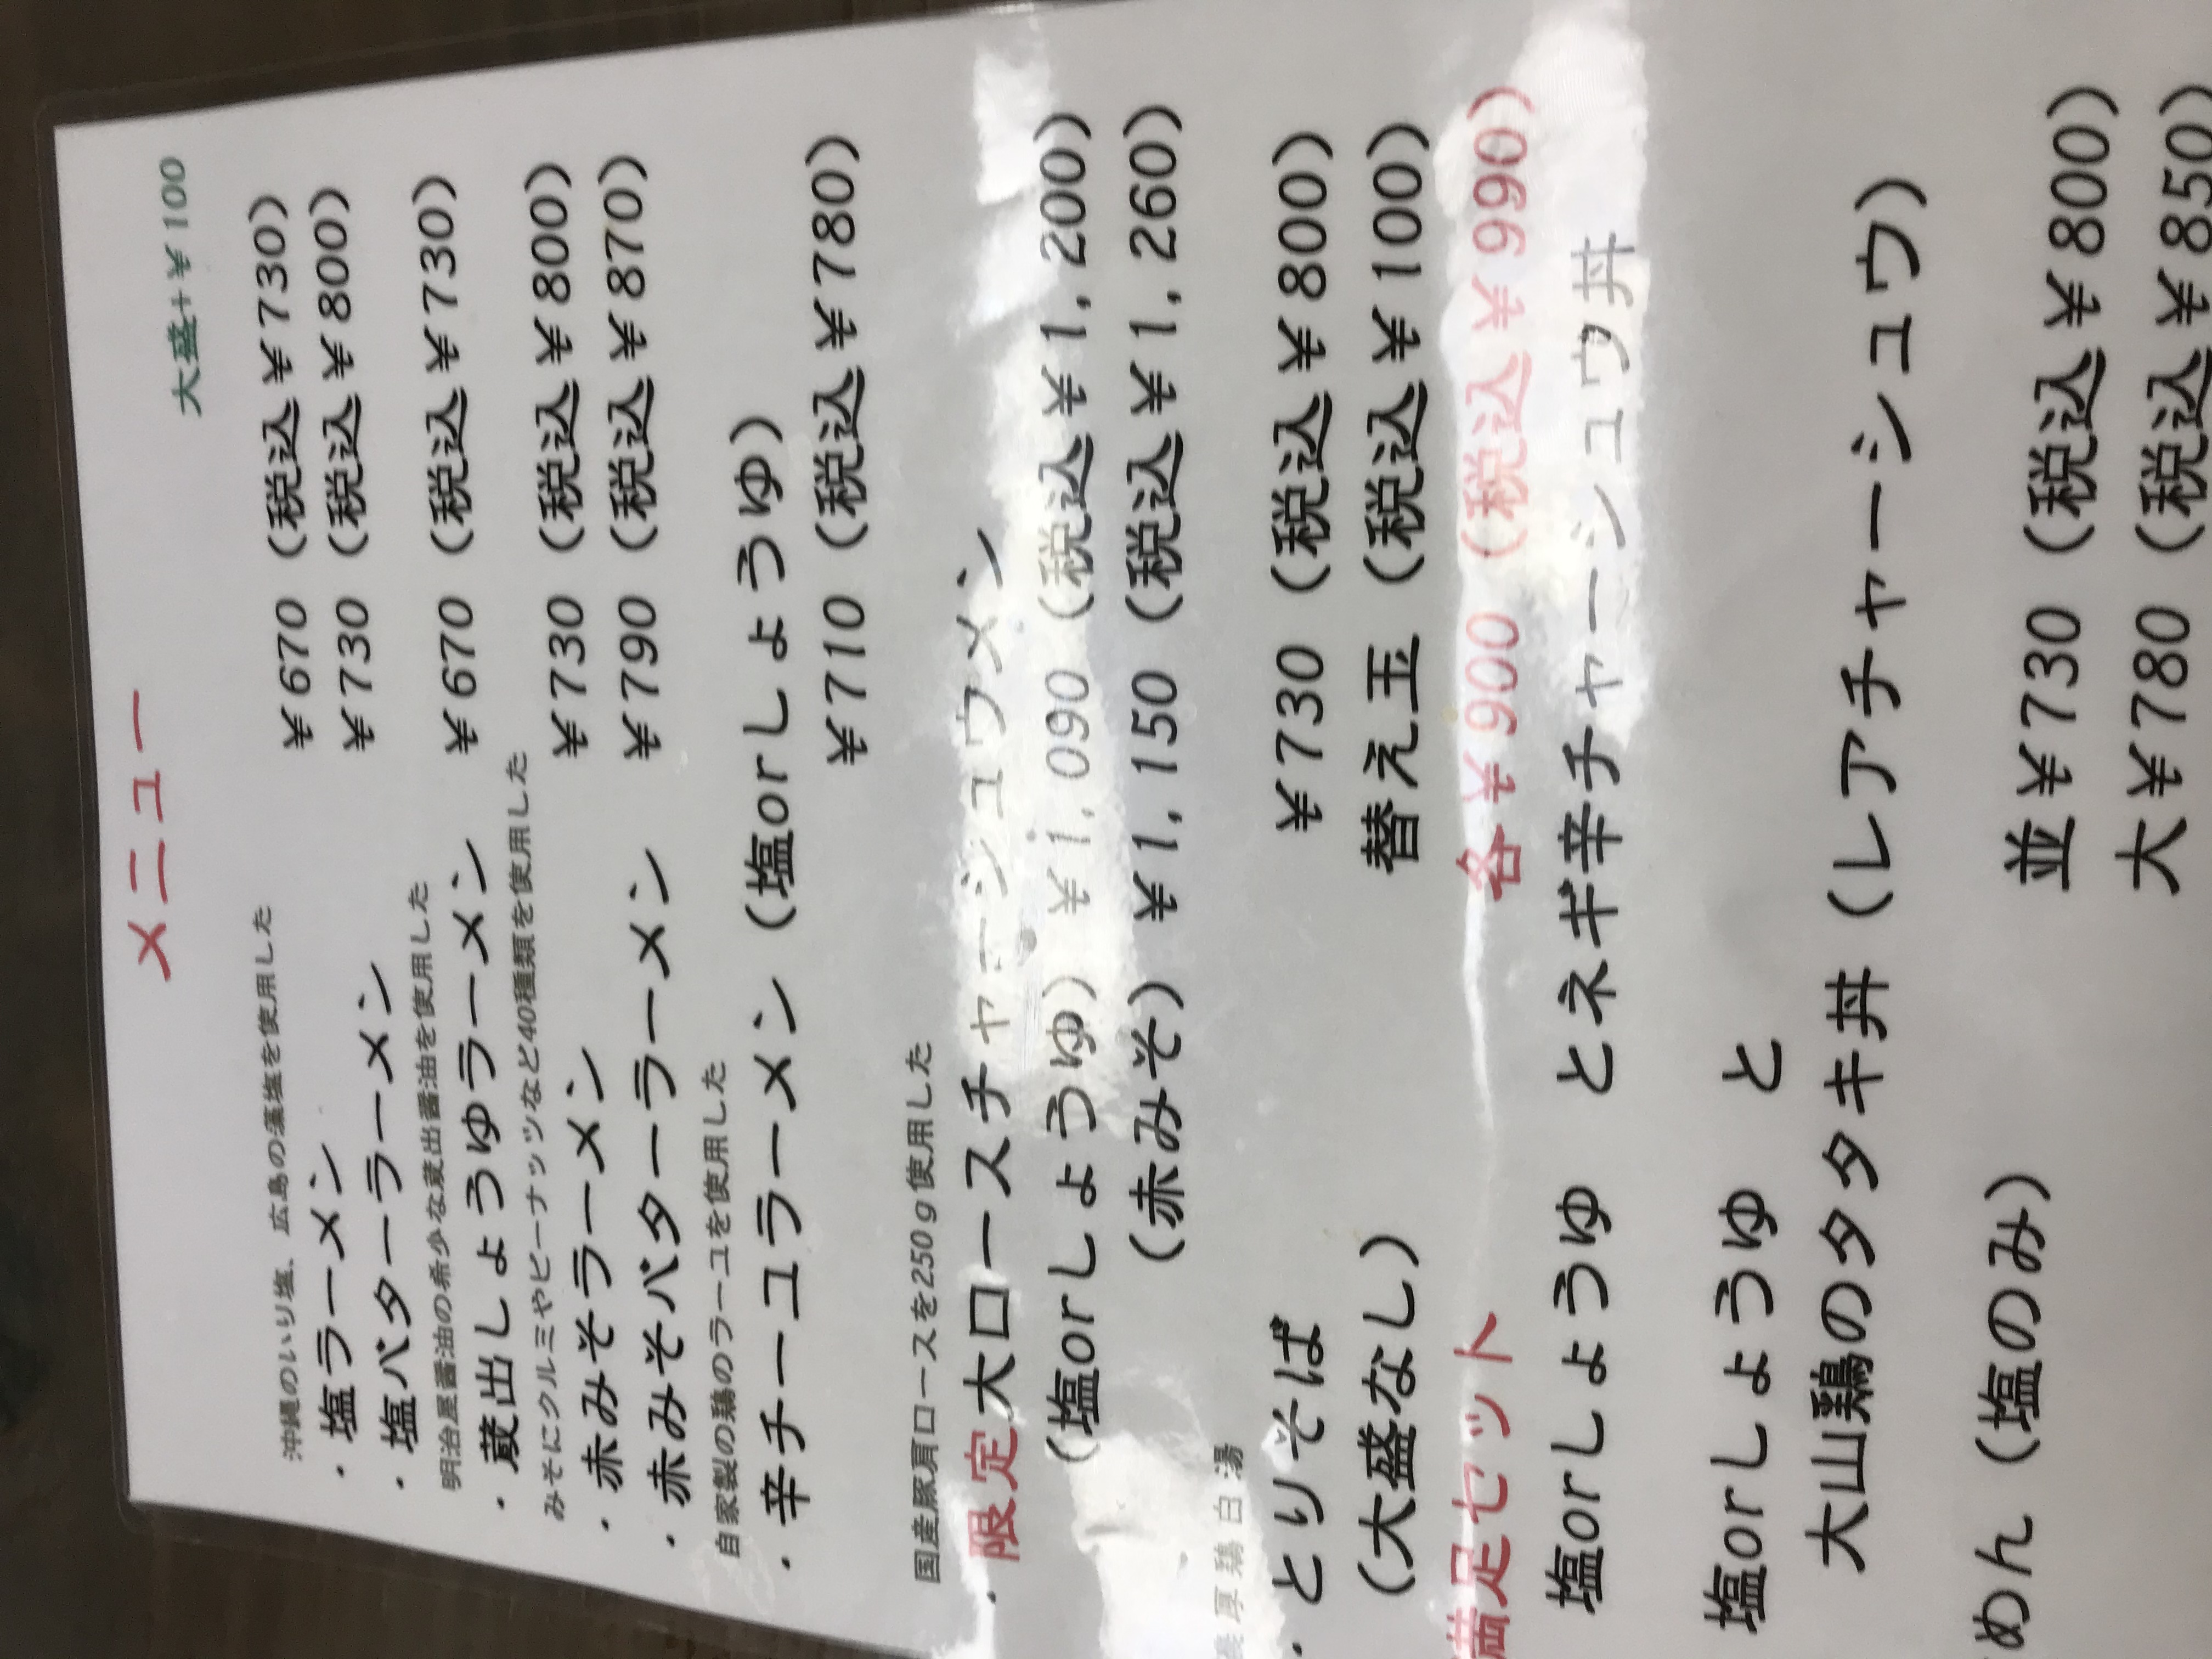 メニュー
大盛+¥100
沖縄のいり塩、広島の藻塩を使用した
・塩ラーメン ¥670 (税込¥730)
・塩バターラーメン ¥730 (税込¥800)
明治屋醤油の希少な蔵出醤油を使用した
・蔵出しょうゆラーメン ¥670 (税込¥730)
みそにクルミやピーナッツなど40種類を使用した
・赤みそラーメン ¥730 (税込¥800)
・赤みそバターラーメン ¥790 (税込¥870)
自家製の鶏のラーユを使用した
・辛チーユラーメン (塩orしょうゆ)
¥710 (税込¥780)
国産豚肩ロースを250g使用した
・限定大ロースチャーシュウメン
(塩orしょうゆ) ¥1,090 (税込¥1,200)
(赤みそ) ¥1,150 (税込¥1,260)
厚鶏白湯
・とりそば ¥730 (税込¥800)
(大盛なし) 替え玉 (税込¥100)
満足セット 各¥900 (税込¥990)
塩orしょうゆ とネギ辛チャーシュウ丼
塩orしょうゆ と
大山鶏のタタキ丼 (レアチャーシュウ)
めん (塩のみ) 並¥730 (税込¥800)
大¥780 (税込¥850)